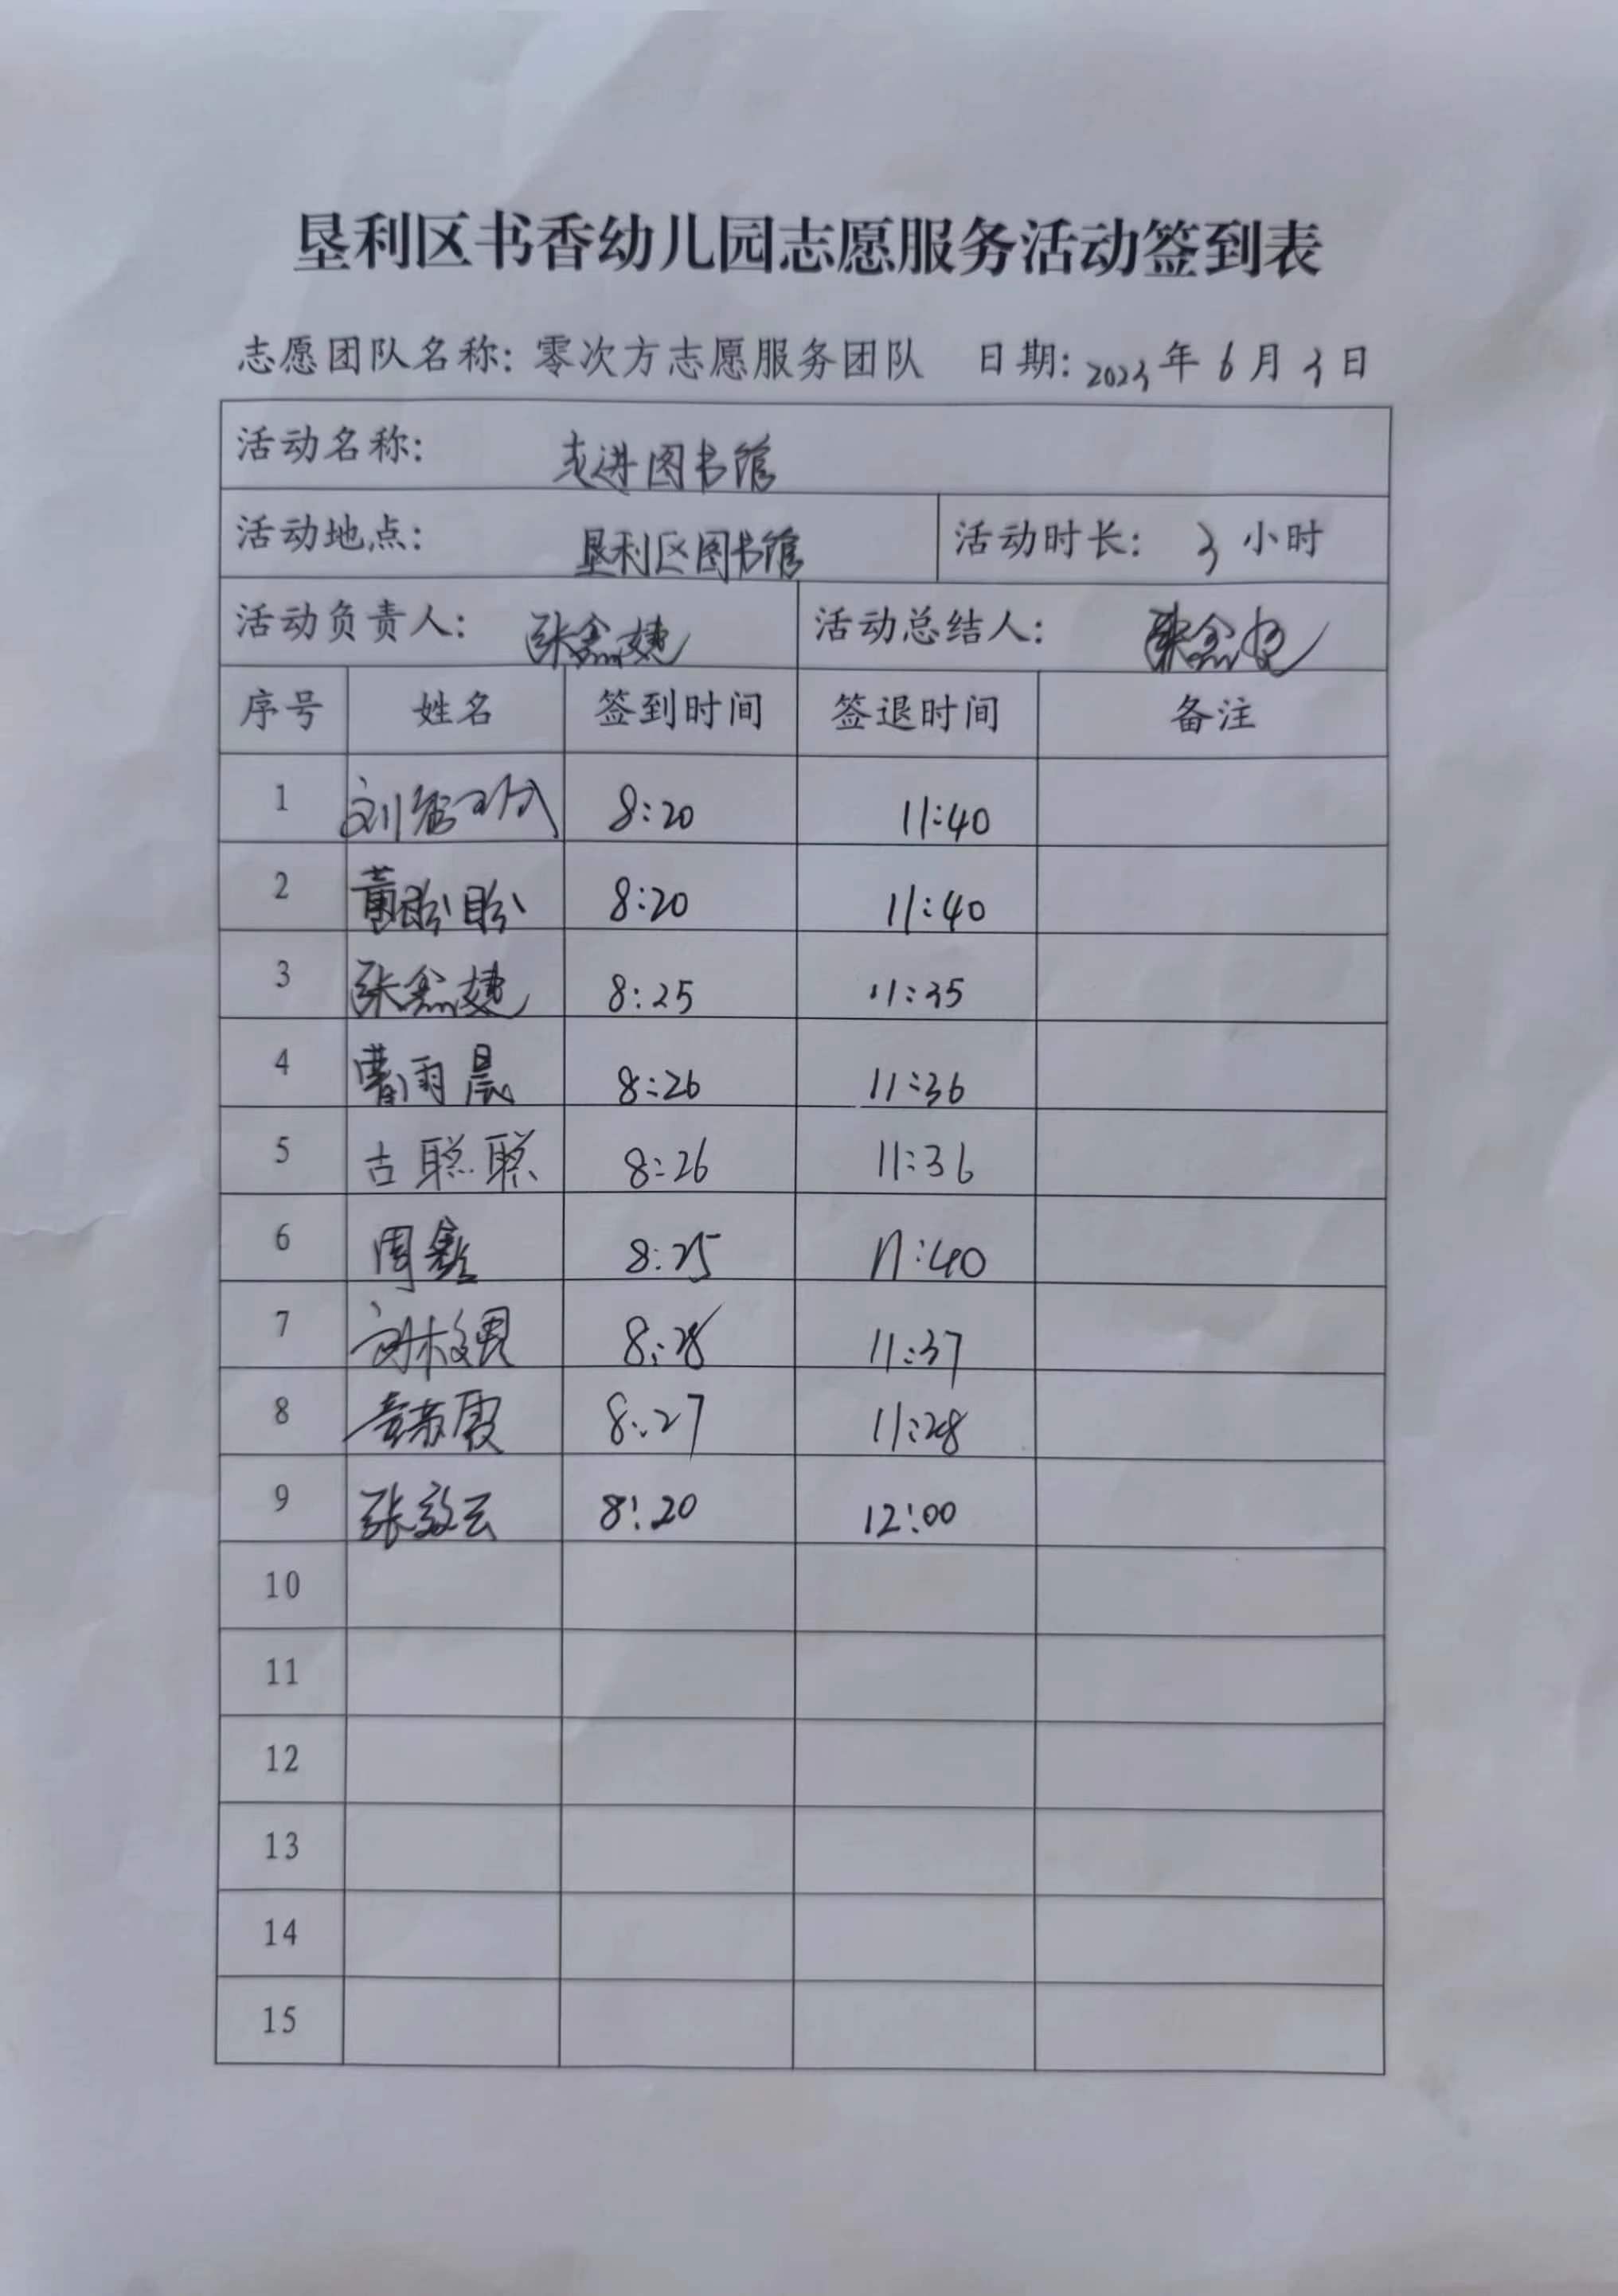 垦利区书香幼儿园志愿服务活动签到表
志愿团队名称: 零次方志愿服务团队 日期: 2023年6月3日
活动名称: 走进图书馆
活动地点: 垦利区图书馆 活动时长: 3小时
活动负责人: 张鑫婕 活动总结人: 张鑫婕
序号 姓名 签到时间 签退时间 备注
1 刘 8:20 11:40
2 黄盼盼 8:20 11:40
3 张鑫婕 8:25 11:35
4 曹雨晨 8:26 11:36
5 古聪聪 8:26 11:36
6 周鑫 8:25 11:40
7 8:28 11:37
8 8:27 11:28
9 张云 8:20 12:00
10
11
12
13
14
15